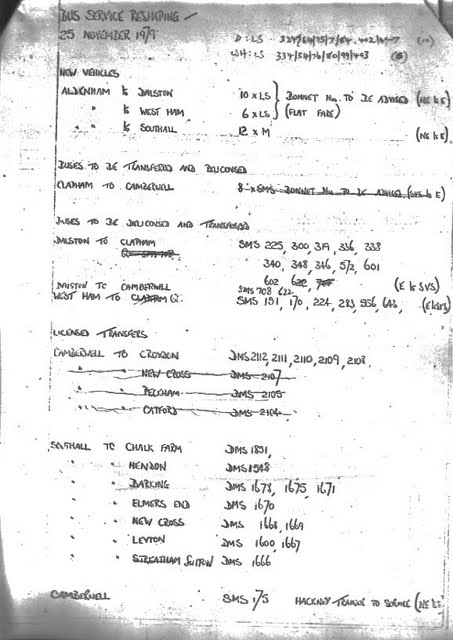 BUS SERVICE RESHAPING
25 NOVEMBER 1979
D: LS
WH: LS
NEW VEHICLES
ALDENHAM to DALSTON 10 x LS } BONNET Nos. TO BE ADVISED (NE to E)
" " to WEST HAM 6 x LS } (FLAT FARE)
" " to SOUTHALL 12 x M (NE to E)
BUSES TO BE TRANSFERRED AND RELICENSED
CLAPHAM TO CAMBERWELL 8 x SMS BONNET Nos TO BE ADVISED (SVS to E)
BUSES TO BE DELICENSED AND TRANSFERRED
DALSTON TO CLAPHAM SMS 225, 300, 319, 336, 338
340, 348, 346, 572, 601
602
DALSTON TO CAMBERWELL SMS 708 622 (E to SVS)
WEST HAM TO CLAPHAM Q. SMS 151, 170, 224, 283, 556, 643, (E to SVS)
LICENSED TRANSFERS
CAMBERWELL TO CROYDON DMS 2112, 2111, 2110, 2109, 2108
" " NEW CROSS DMS 2107
" " PECKHAM DMS 2105
" " CATFORD DMS 2104
SOUTHALL TO CHALK FARM DMS 1851,
" " HENDON DMS 1598
" " BARKING DMS 1673, 1675, 1671
" " ELMERS END DMS 1670
" " NEW CROSS DMS 1668, 1669
" " LEYTON DMS 1600, 1667
" " STREATHAM SUTTON DMS 1666
CAMBERWELL SMS 175 HACKNEY TRAINER TO SERVICE (NE to E